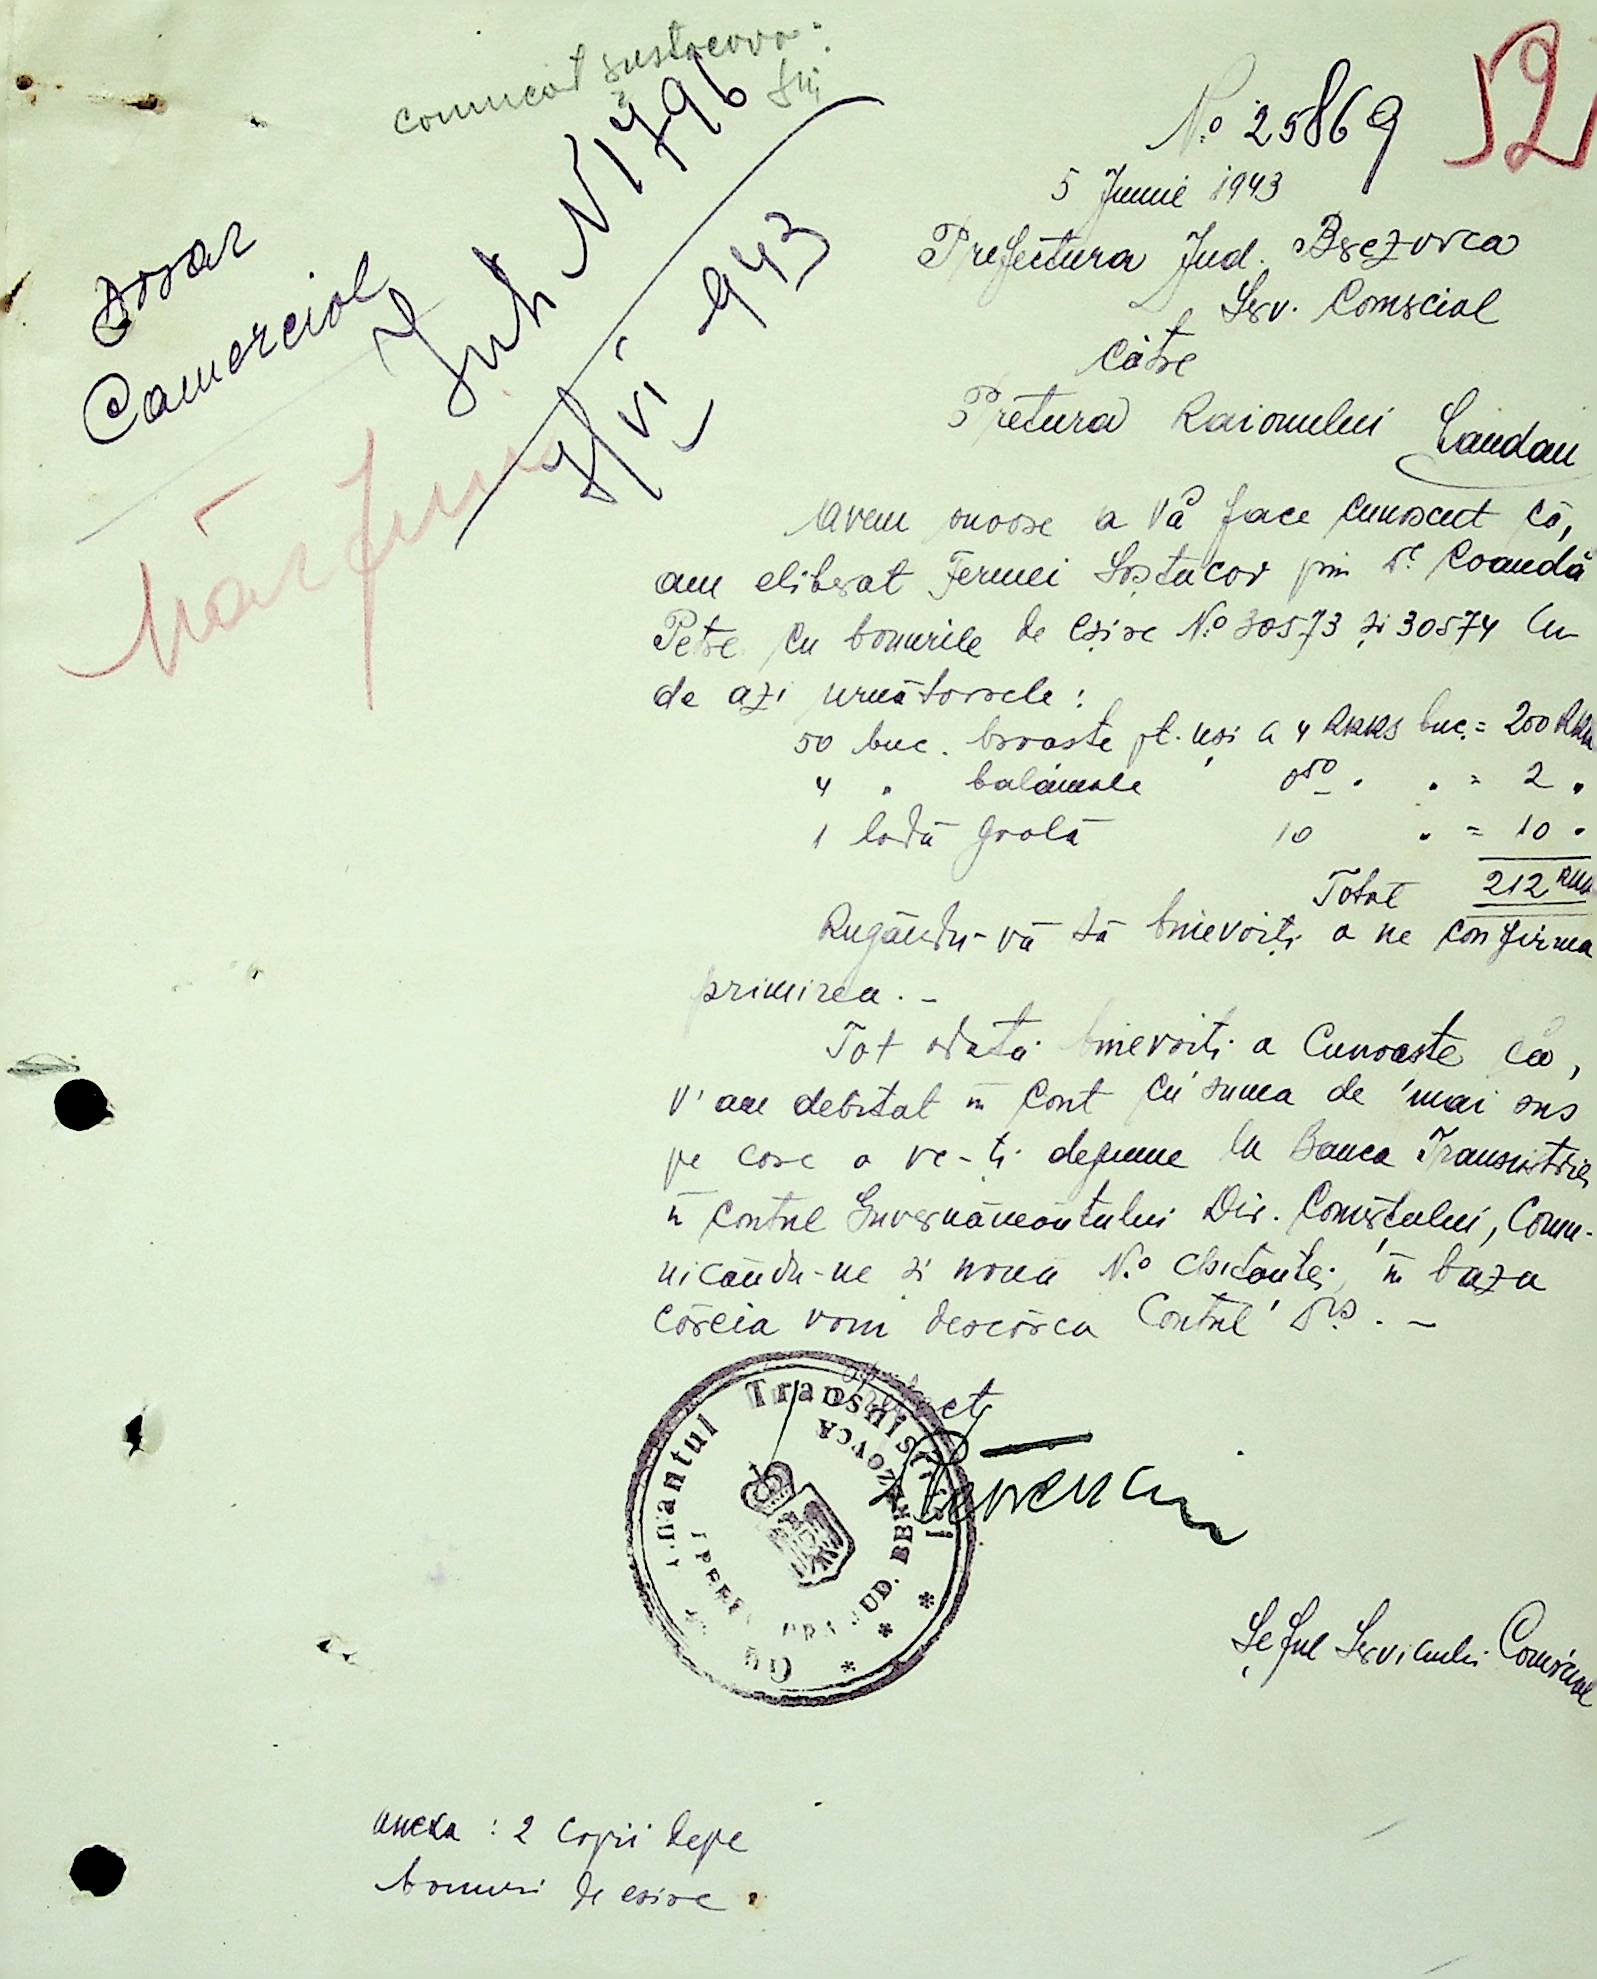 comunicat
Dosar
Comercial
Intr. N 1796
7/VI 943
52
No 25869
5 Iunie 1943
Prefectura Jud. Berezovca
Serv. Comercial
către
Pretura Raionului Landau
Avem onoare a Vă face cunoscut că,
am eliberat Fermei Șostacov prin Dl. Coandă
Petre cu bonurile de eșire No 30573 și 30574 cu
de azi următoarele :
50 buc. broaste pt. uși a 4 RKKS buc. = 200 RKK
4 " balamale 0 50 " " = 2 "
1 ladă goală 10 " = 10 "
Total 212 RKK
Rugându-vă să binevoiți a ne confirma
primirea. -
Tot odată binevoiți a cunoaște că,
v'am debitat în cont cu suma de mai sus
pe care o ve-ți depune la Banca Transnistriei
în contul Guvernământului Dir. Comerțului, Comu-
nicându-ne și nouă No chitanței, în baza
căreia vom descărca Contul Dvs. -
Prefect
Guvernământul Transnistriei
PREFECTURA JUD. BEREZOVCA
Șeful Serviciului Comercial
Anexa : 2 copii depe
bonuri de esire .